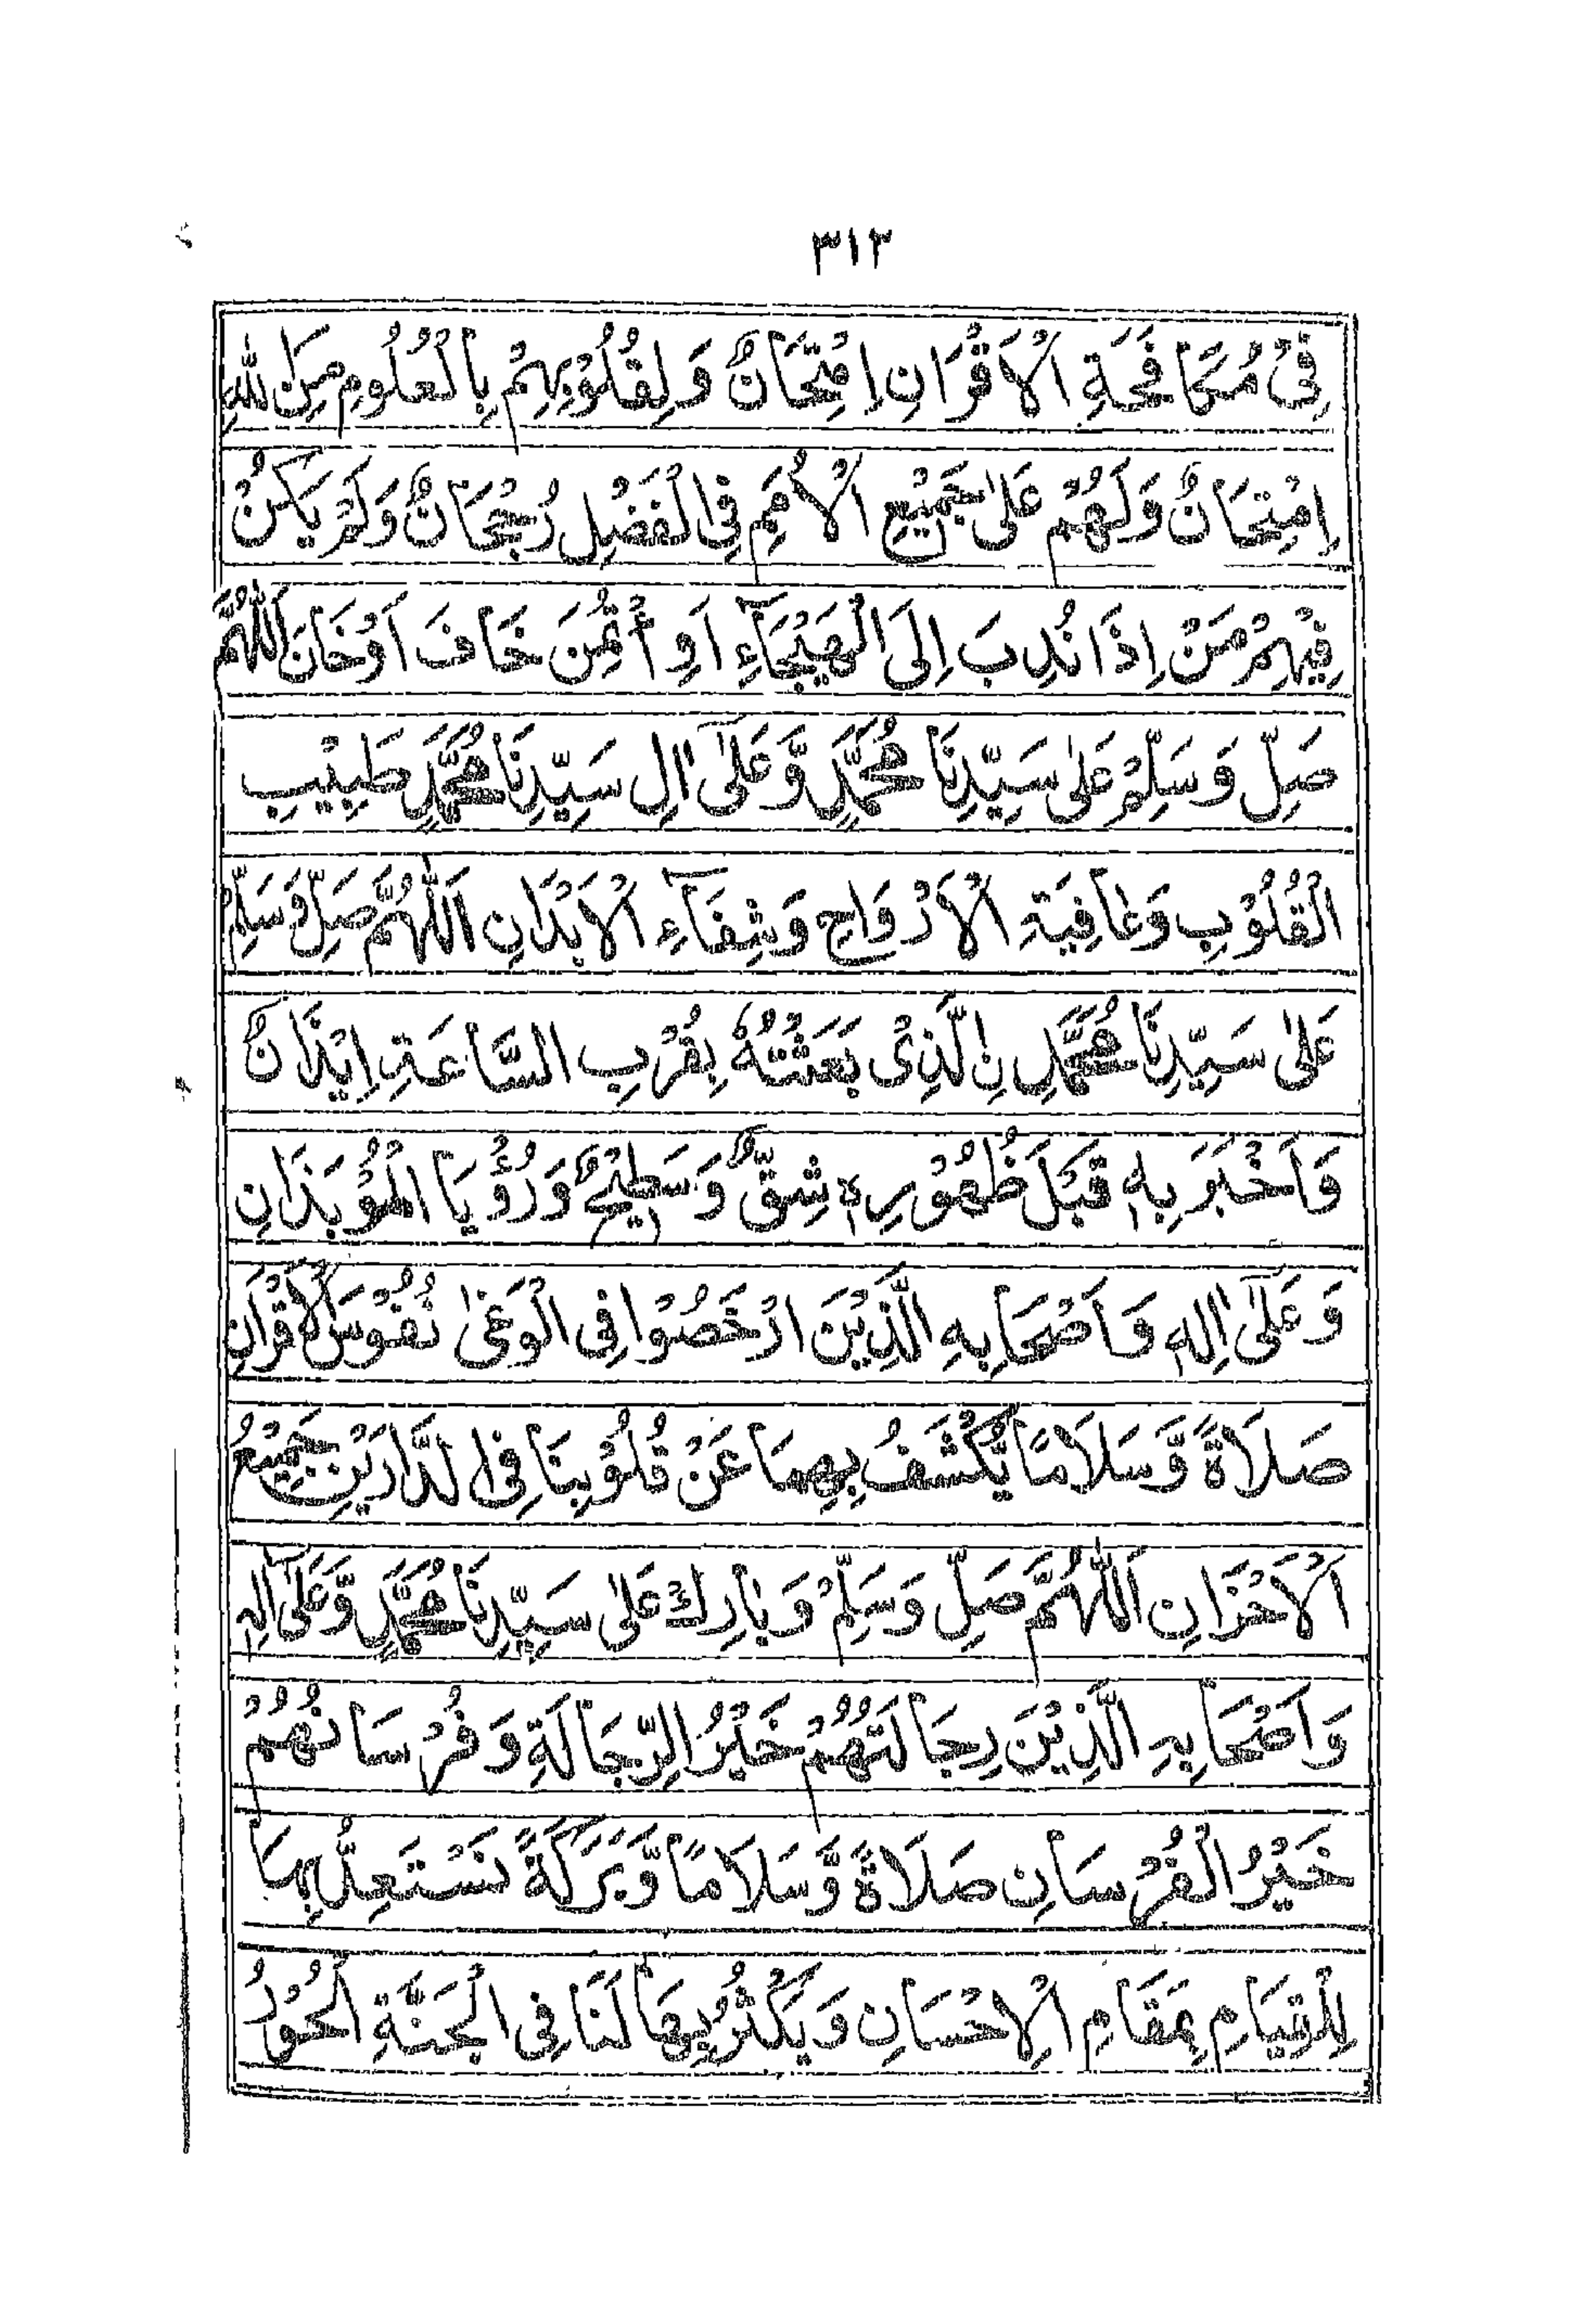 ٣١٣
فِیْ مُكَافَحَةِ الْاَقْرَانِ اِمْتِحَانٌ وَلِقُلُوْبِهِمْ بِالْعُلُومِ مِنَ اللهِ
اِمْتِحَانٌ وَلَهُمْ عَلٰی جَمِيْعِ الْاُمَمِ فِی الْفَضْلِ رُجْحَانٌ وَلَمْ يَكُنْ
فِيْهِمْ مَنْ اِذَا نُدِبَ اِلَی الْهَيْجَآءِ اَوِ أْتُمِنَ خَافَ اَوْخَانَ اَللّٰهُمَّ
صَلِّ وَسَلِّمْ عَلٰی سَيِّدِنَا مُحَمَّدٍ وَّعَلٰٓی اٰلِ سَيِّدِنَا مُحَمَّدٍ طَبِيْبِ
الْقُلُوْبِ وَعَافِيَةِ الْاَرْوَاحِ وَشِفَآءِ الْاَبْدَانِ اَللّٰهُمَّ صَلِّ وَسَلِّمْ
عَلٰی سَيِّدِنَا مُحَمَّدِ نِ الَّذِیْ بَعَثْتُهٗ بِقُرْبِ السَّاعَةِ اِيْذَانٌ
وَاَخْبَرَ بِهٖ قَبْلَ ظُهُوْرِهٖ شِقٌّ وَسَطِيْحٌ وَرُؤْيَا الْمُؤْبَذَانِ
وَعَلٰٓی اٰلِهٖ وَاَصْحَابِهِ الَّذِيْنَ ارْخَصُوْا فِی الْوَغٰی نُفُوْسَ الْاَقْرَانِ
صَلَاةً وَّسَلَامًا يَّكْشَفُ بِهِمَا عَنْ قُلُوْبِنَا فِی الدَّارَيْنِ جَمِيْعُ
الْاَحْزَانِ اَللّٰهُمَّ صَلِّ وَسَلِّمْ وَبَارِكْ عَلٰی سَيِّدِنَا مُحَمَّدٍ وَّعَلٰٓی اٰلِهٖ
وَاَصْحَابِهِ الَّذِيْنَ رِجَالَتُهُمْ خَيْرُ الرِّجَالَةِ وَفُرْسَانُهُمْ
خَيْرُ الْفُرْسَانِ صَلَاةً وَّسَلَامًا وَّبَرَكَةً نَسْتَعِدُّ بِهَا
لِلْقِيَامِ بِمَقَامِ الْاِحْسَانِ وَيَكْثُرُ بِهَا لَنَا فِی الْجَنَّةِ الْحُوْرُ